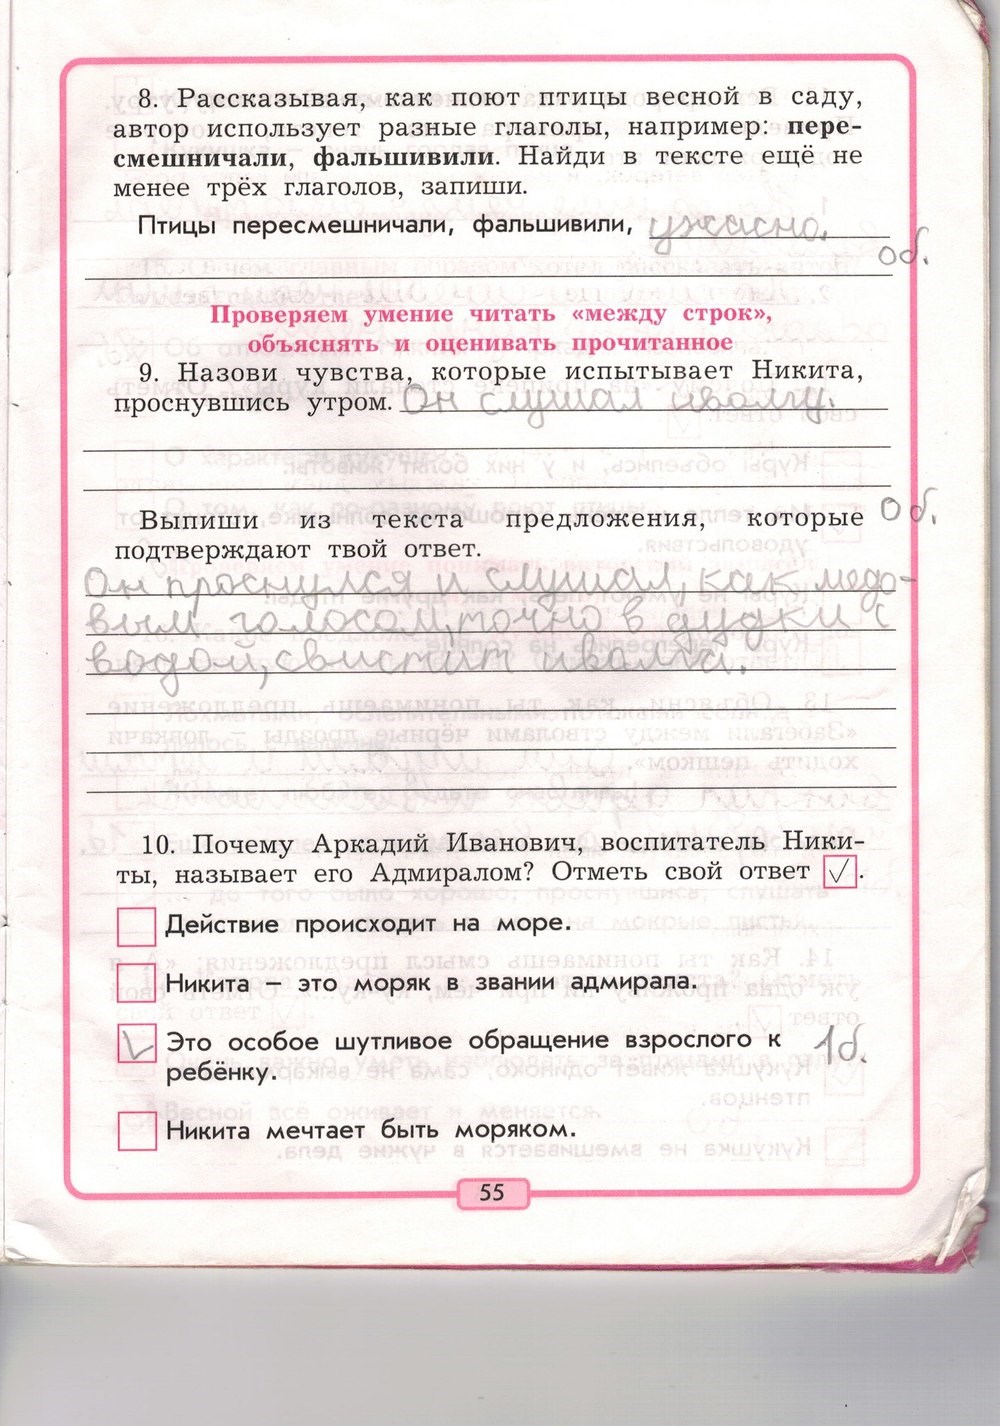 8. Рассказывая, как поют птицы весной в саду,
автор использует разные глаголы, например: пере-
смешничали, фальшивили. Найди в тексте ещё не
менее трёх глаголов, запиши.
Птицы пересмешничали, фальшивили, ужасно.
0б.
Проверяем умение читать «между строк»,
объяснять и оценивать прочитанное
9. Назови чувства, которые испытывает Никита,
проснувшись утром. Он слушал иволгу.
Выпиши из текста предложения, которые 0б.
подтверждают твой ответ.
Он проснулся и слушал, как медо-
вым голосом, точно в дудки с
водой, свистит иволга.
10. Почему Аркадий Иванович, воспитатель Ники-
ты, называет его Адмиралом? Отметь свой ответ ✓.
Действие происходит на море.
Никита – это моряк в звании адмирала.
Это особое шутливое обращение взрослого к 1б.
ребёнку.
Никита мечтает быть моряком.
55